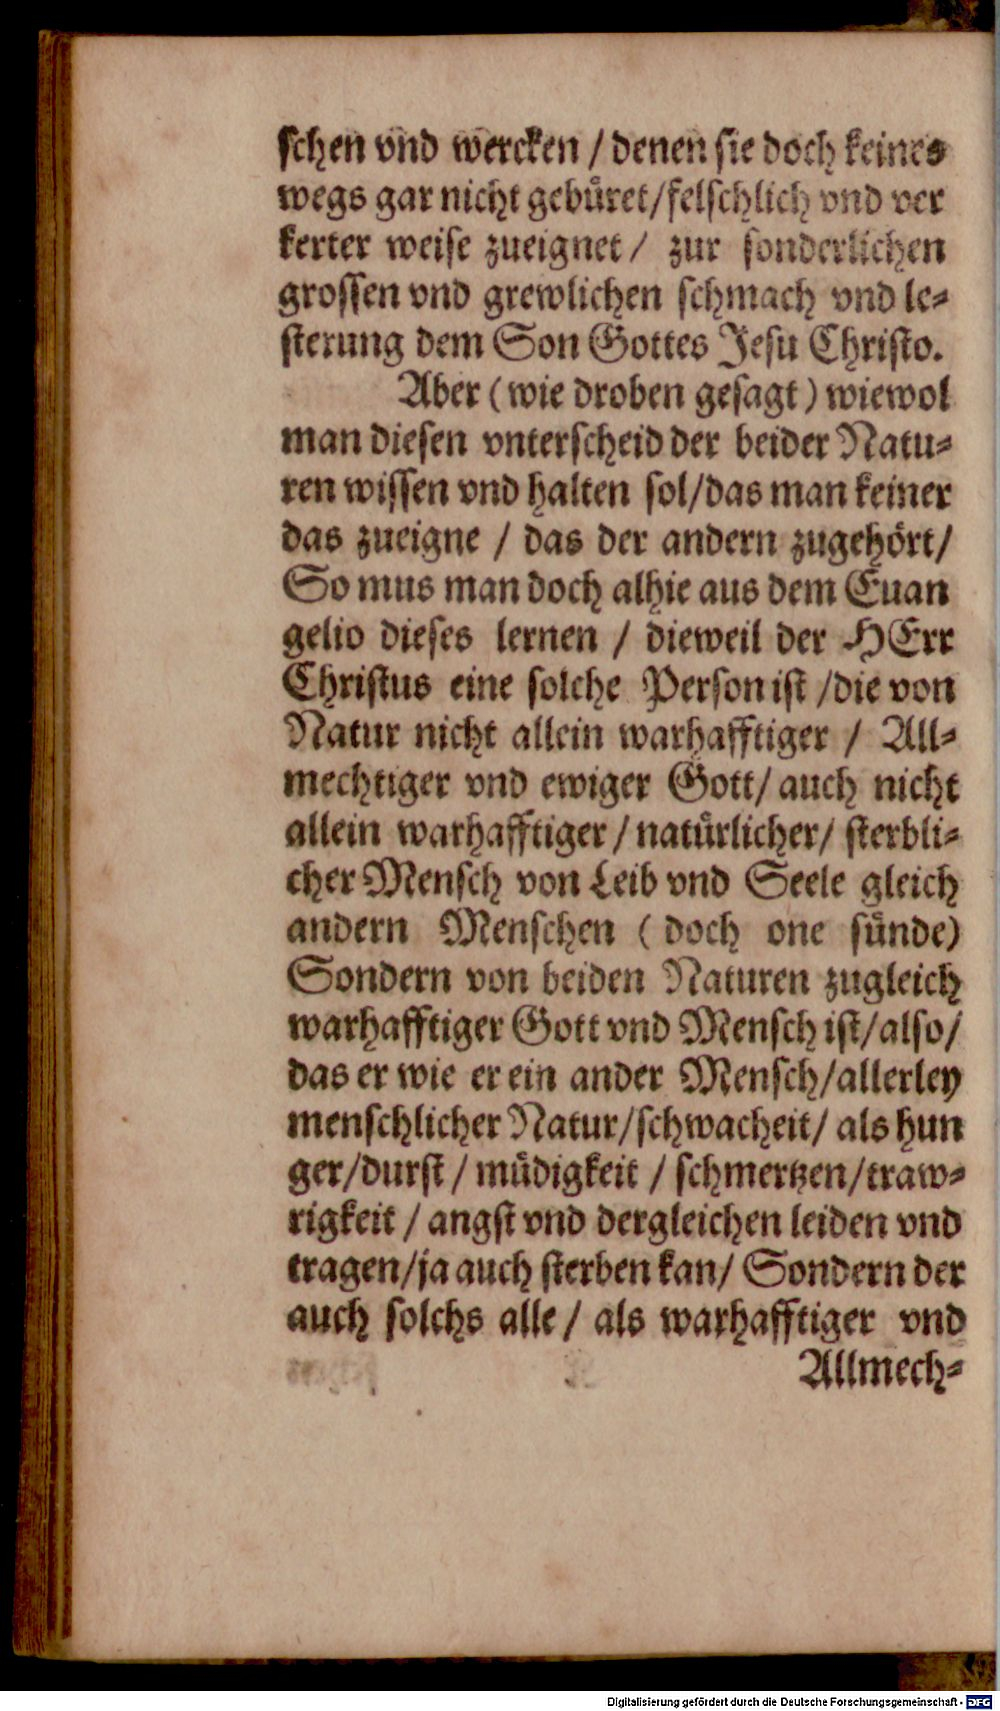 schen vnd wercken / denen sie doch keines
wegs gar nicht gebuͤret/felschlich vnd ver
kerter weise zueignet / zur sonderlichen
grossen vnd grewlichen schmach vnd le⸗
sterung dem Son Gottes Jesu Christo.
Aber (wie droben gesagt) wiewol
man diesen vnterscheid der beider Natu⸗
ren wissen vnd halten sol/das man keiner
das zueigne / das der andern zugehoͤrt/
So mus man doch alhie aus dem Euan
gelio dieses lernen / dieweil der HErr
Christus eine solche Person ist /die von
Natur nicht allein warhafftiger / All⸗
mechtiger vnd ewiger Gott/ auch nicht
allein warhafftiger / natuͤrlicher/ sterbli⸗
cher Mensch von Leib vnd Seele gleich
andern Menschen ( doch one suͤnde)
Sondern von beiden Naturen zugleich
warhafftiger Gott vnd Mensch ist/also/
das er wie er ein ander Mensch/allerley
menschlicher Natur/schwacheit/ als hun
ger/durst / muͤdigkeit / schmertzen/traw⸗
rigkeit / angst vnd dergleichen leiden vnd
tragen/ja auch sterben kan/ Sondern der
auch solchs alle / als warhafftiger vnd
Allmech⸗
Digitalisierung gefördert durch die Deutsche Forschungsgemeinschaft - DFG